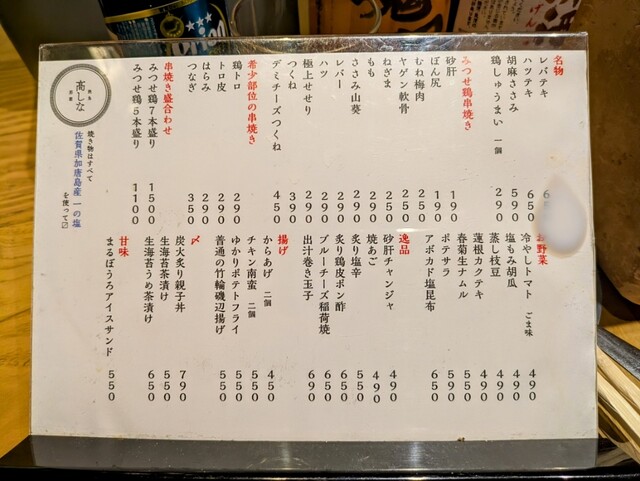 名物
レバテキ 6
ハツテキ 650
胡麻ささみ 590
鶏しゅうまい 一個 290
みつせ鶏串焼き
砂肝 190
ぼん尻 190
むね梅肉 250
ヤゲン軟骨 250
ねぎま 250
もも 250
ささみ山葵 290
レバー 290
ハツ 290
極上せせり 290
つくね 390
デミチーズつくね 450
希少部位の串焼き
鶏トロ 290
トロ皮 290
はらみ 290
つなぎ 350
串焼き盛合わせ
みつせ鶏7本盛り 1500
みつせ鶏5本盛り 1100
高しな
焼き物はすべて
佐賀県加唐島産 一の塩
を使って〼
お野菜
冷やしトマト ごま味 490
塩もみ胡瓜 490
蒸し枝豆 490
蓮根カクテキ 490
春菊生ナムル 550
ポテサラ 590
アボカド塩昆布 650
逸品
砂肝チャンジャ 490
焼あご 490
炙り塩辛 550
炙り鶏皮ポン酢 650
ブルーチーズ稲荷焼 650
出汁巻き玉子 690
揚げ
からあげ 二個 450
チキン南蛮 二個 550
ゆかりポテトフライ 550
普通の竹輪磯辺揚げ 550
〆
炭火炙り親子丼 790
生海苔茶漬け 550
生海苔うめ茶漬け 650
甘味
まるぼうろアイスサンド 550